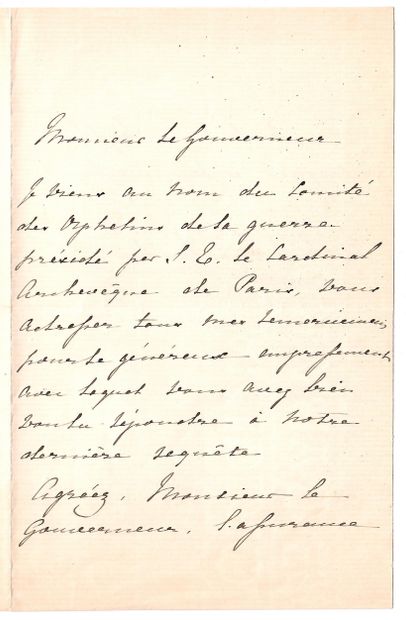 Monsieur le Gouverneur
Je viens au nom du Comité
des Orphelins de la guerre
présidé par S. E. le Cardinal
Archevêque de Paris, vous
adresser tous mes remerciements
pour le généreux empressement
avec lequel vous avez bien
voulu répondre à notre
dernière requête
Agréez, Monsieur le
Gouverneur, l'assurance